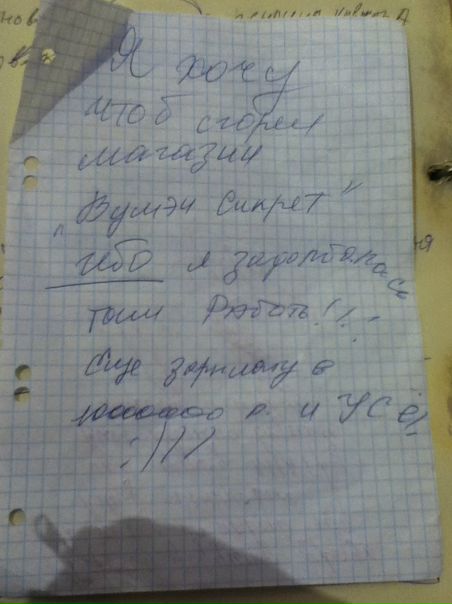 Я хочу
чтоб сгорел
магазин
"Вумэн Сикрет"
ибо я задолбалась
там Работь!!!
Еще зарплату в
10000000 р. и УСё!
:)))